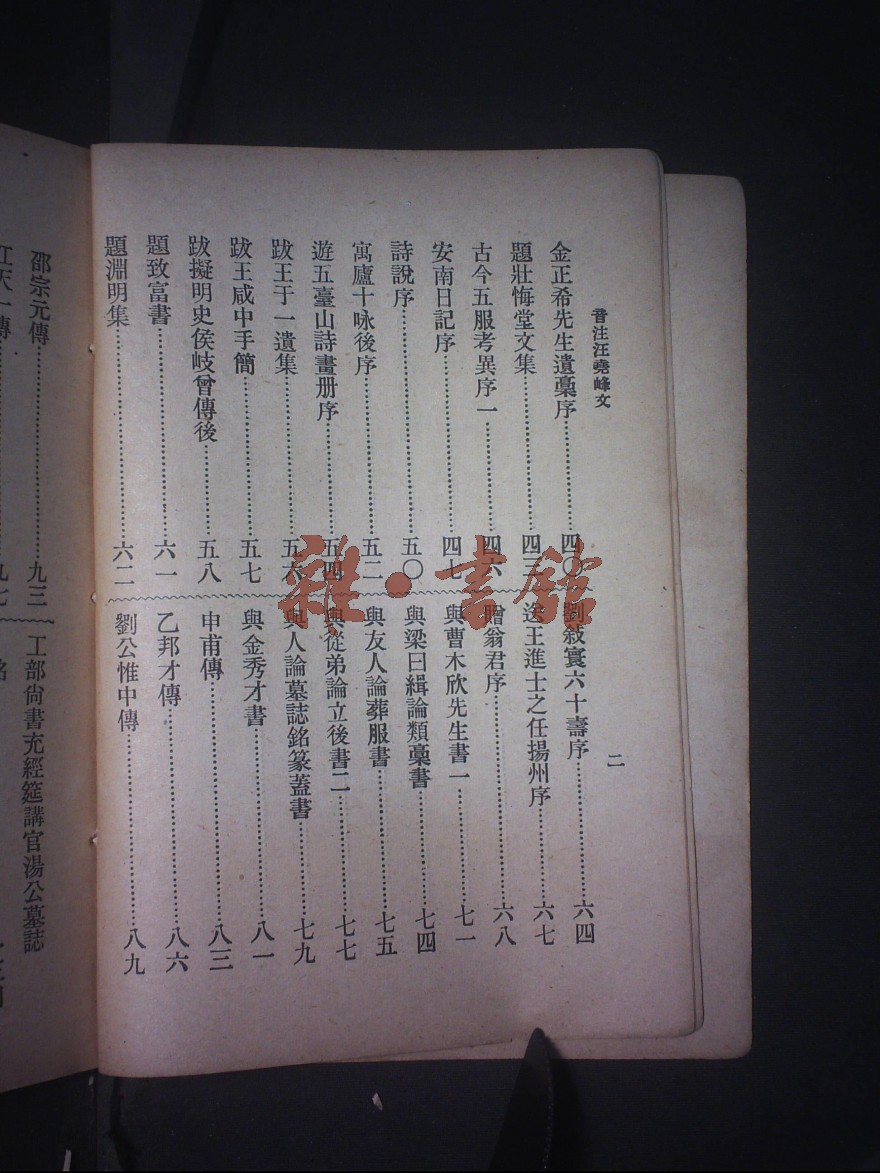 音注汪堯峰文
二
金正希先生遺稾序……四〇
題壯悔堂文集……四三
古今五服考異序一……四六
安南日記序……四七
詩說序……五〇
寓廬十咏後序……五二
遊五臺山詩畫册序……五四
跋王于一遺集……五六
跋王咸中手簡……五七
跋擬明史侯岐曾傳後……五八
題致富書……六一
題淵明集……六二
劉敍寰六十壽序……六四
送王進士之任揚州序……六七
贈翁君序……六八
與曹木欣先生書一……七一
與梁曰緝論類稾書……七四
與友人論葬服書……七五
與從弟論立後書二……七七
與人論墓誌銘篆蓋書……七九
與金秀才書……八一
申甫傳……八三
乙邦才傳……八六
劉公惟中傳……八九
邵宗元傳……九三
江天一傳……九七
工部尙書充經筵講官湯公墓誌
銘
雜·書館